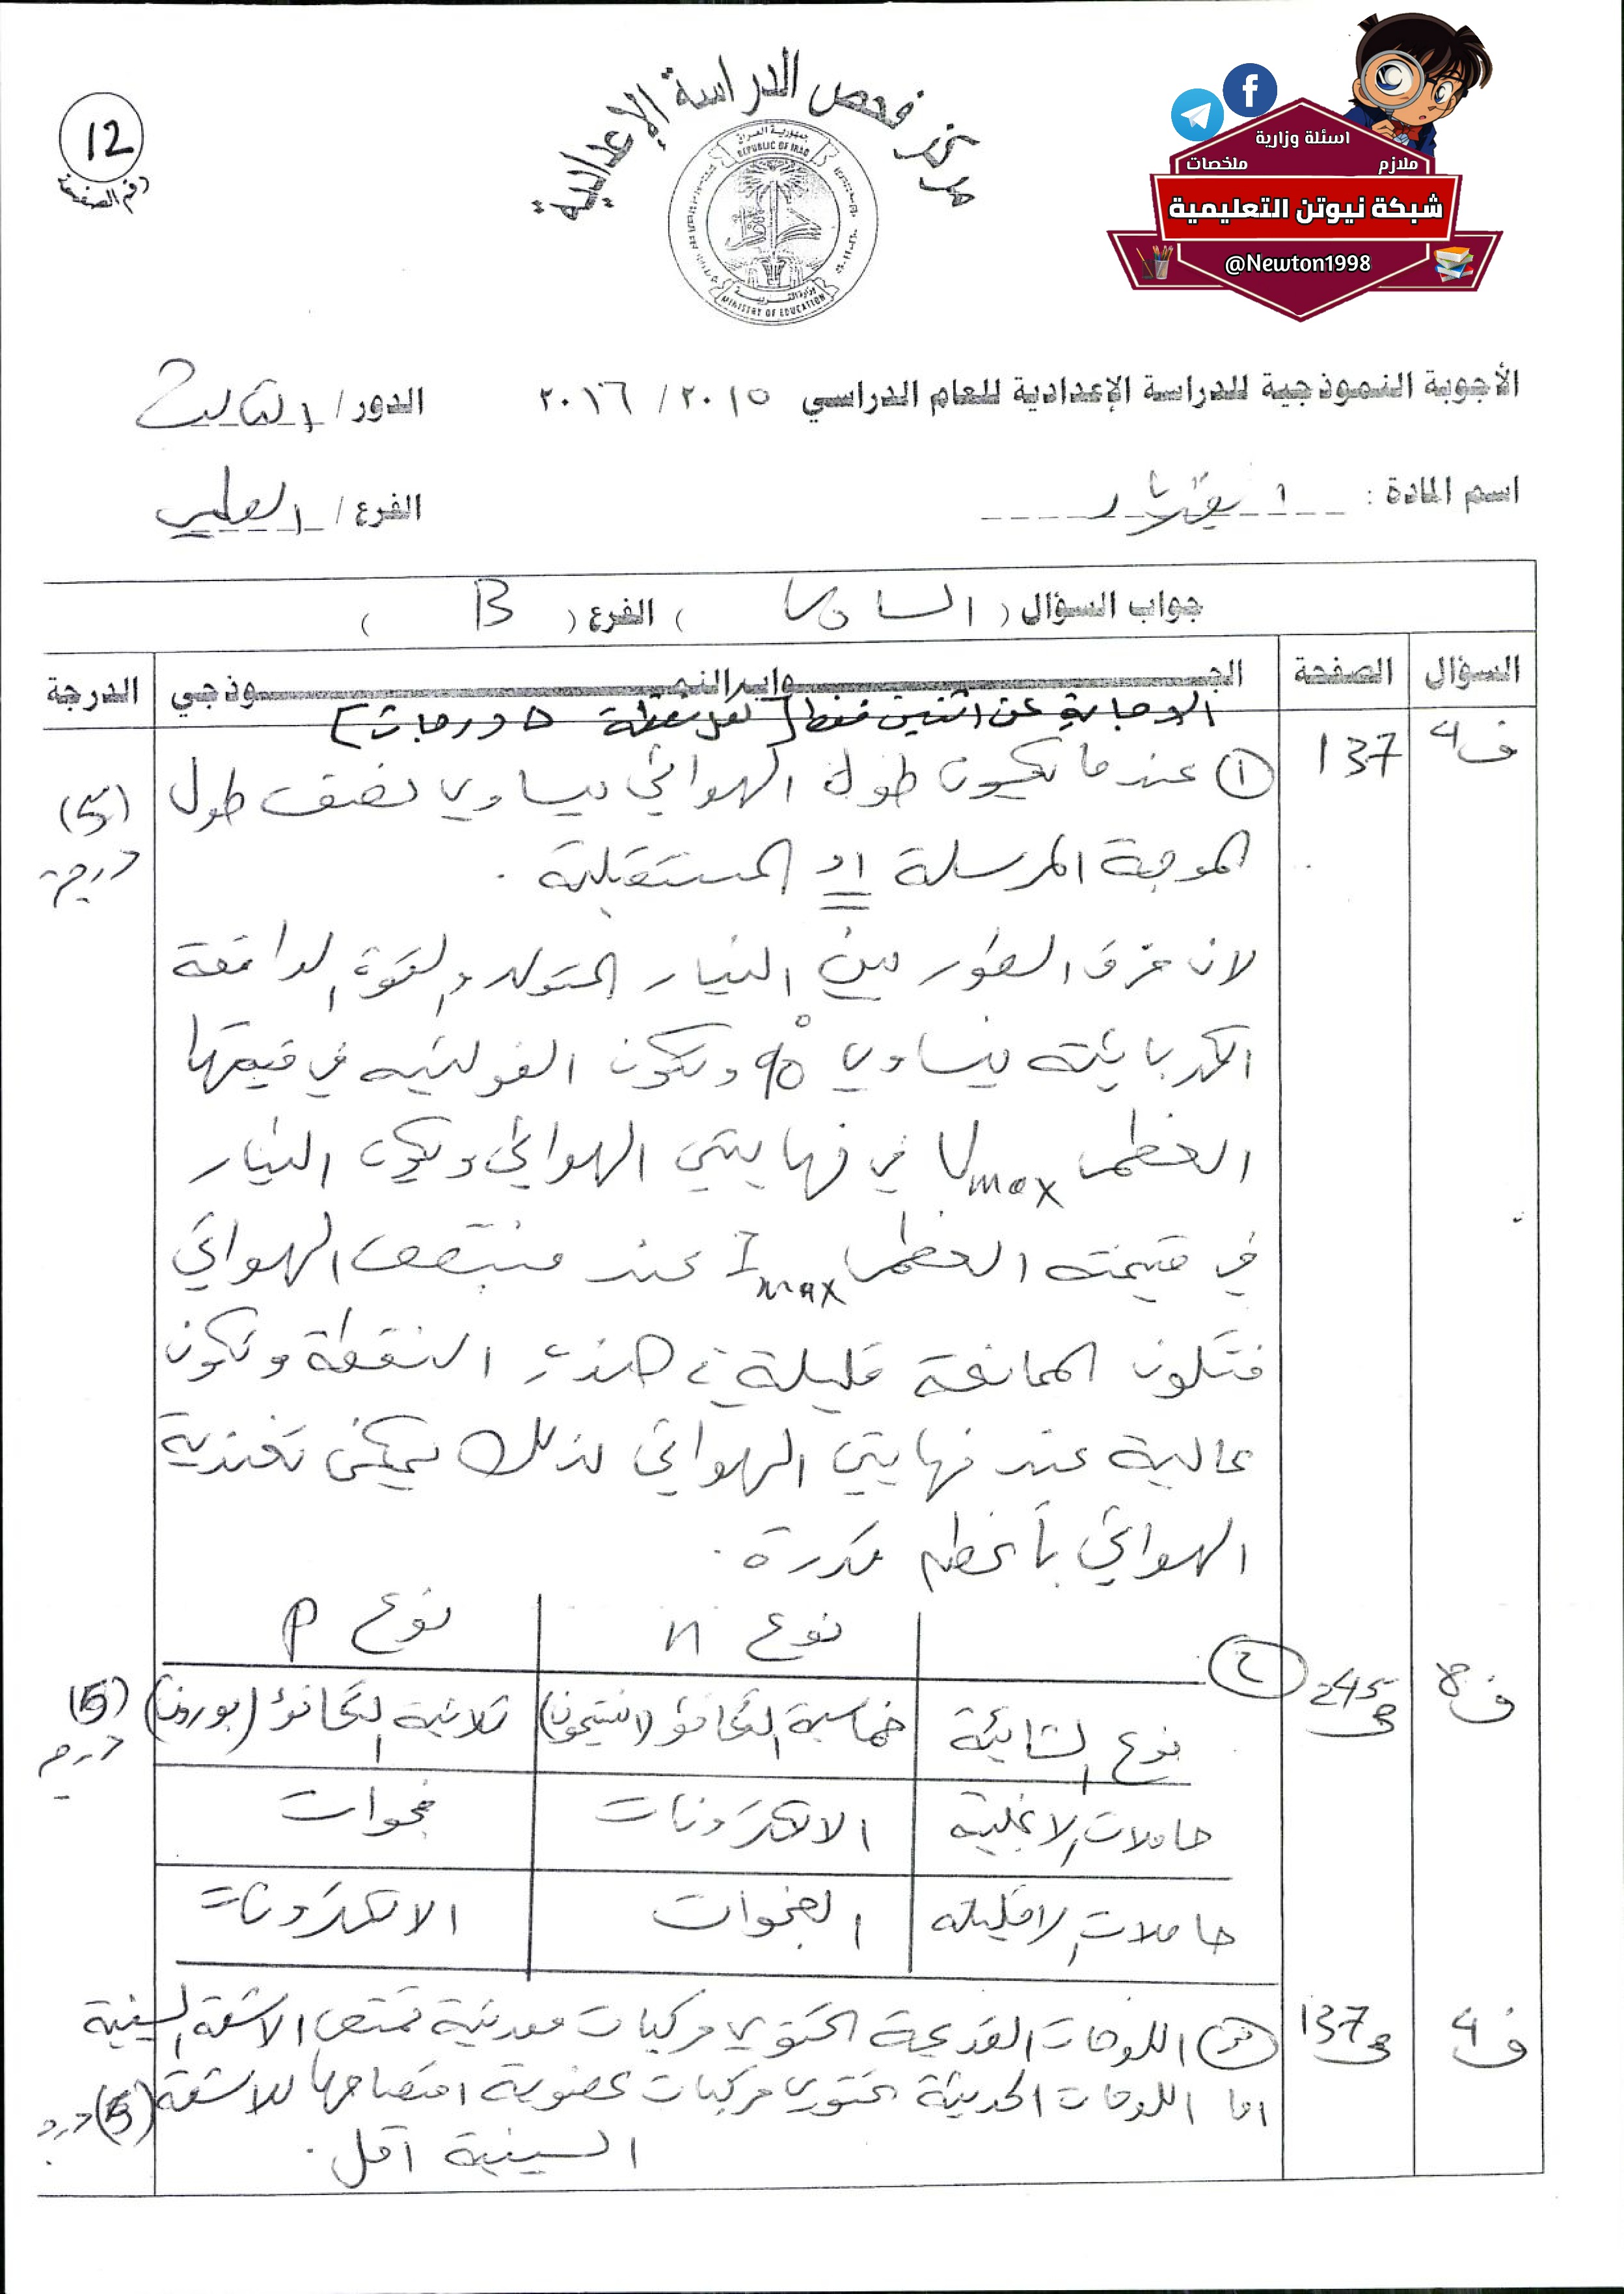 12
رقم الصفحة
مركز فحص الدراسة الإعدادية
جمهورية العراق
REPUBLIC OF IRAQ
وزارة التربية
MINISTRY OF EDUCATION
اسئلة وزارية
ملازم ملخصات
شبكة نيوتن التعليمية
@Newton1998
الأجوبة النموذجية للدراسة الإعدادية للعام الدراسي ٢٠١٥ / ٢٠١٦ الدور / الثالث
اسم المادة : الفيزياء الفرع / العلمي
جواب السؤال ( السادس ) الفرع ( B )
السؤال الصفحة الجواب النموذجي الدرجة
الاجابة عن اثنين فقط [ لكل نقطة 5 درجات ]
ف4 137 ① عندما يكون طول الهوائي يساوي نصف طول (5) درجة
الموجة المرسلة او المستقبلة .
لان فرق الطور بين التيار المتولد والقوة الدافعة
الكهربائية يساوي 90° وتكون الفولتية في قيمتها
العظمى Vmax في نهايتي الهوائي ويكون التيار
في قيمته العظمى Imax عند منتصف الهوائي
فتكون الممانعة قليلة في هذه النقطة وتكون
عالية عند نهايتي الهوائي لذلك يمكن تغذية
الهوائي بأعظم قدرة .
نوع n نوع P
ف8 245 ص ② نوع الشائبة خماسية التكافؤ (انتيمون) ثلاثية التكافؤ (بورون) (5) درجة
حاملات الاغلبية الالكترونات فجوات
حاملات الاقلية الفجوات الالكترونات
ف4 137 ص ③ اللوحات القديمة تحتوي مركبات معدنية تمتص الاشعة السينية
اما اللوحات الحديثة تحتوي مركبات عضوية امتصاصها للاشعة (5) درجة
السينية أقل .